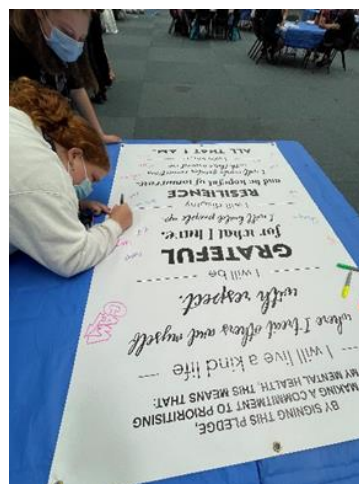 BY SIGNING THIS PLEDGE,
MAKING A COMMITMENT TO PRIORITISING
MY MENTAL HEALTH. THIS MEANS THAT:
I will live a kind life
where I treat others and myself
with respect.
I will be
GRATEFUL
for what I have.
I will build people up.
I will display
RESILIENCE
and be hopeful of tomorrow.
I will make genuine connections
with those around me
ALL THAT I AM.